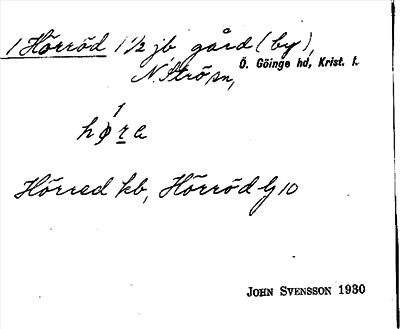 1 Hörröd 1 1/2 jb gård (by),
N. Strö sn, Ö. Göinge hd, Krist. l.
hø1re
Hörred kb, Hörröd GJ 10
JOHN SVENSSON 1930